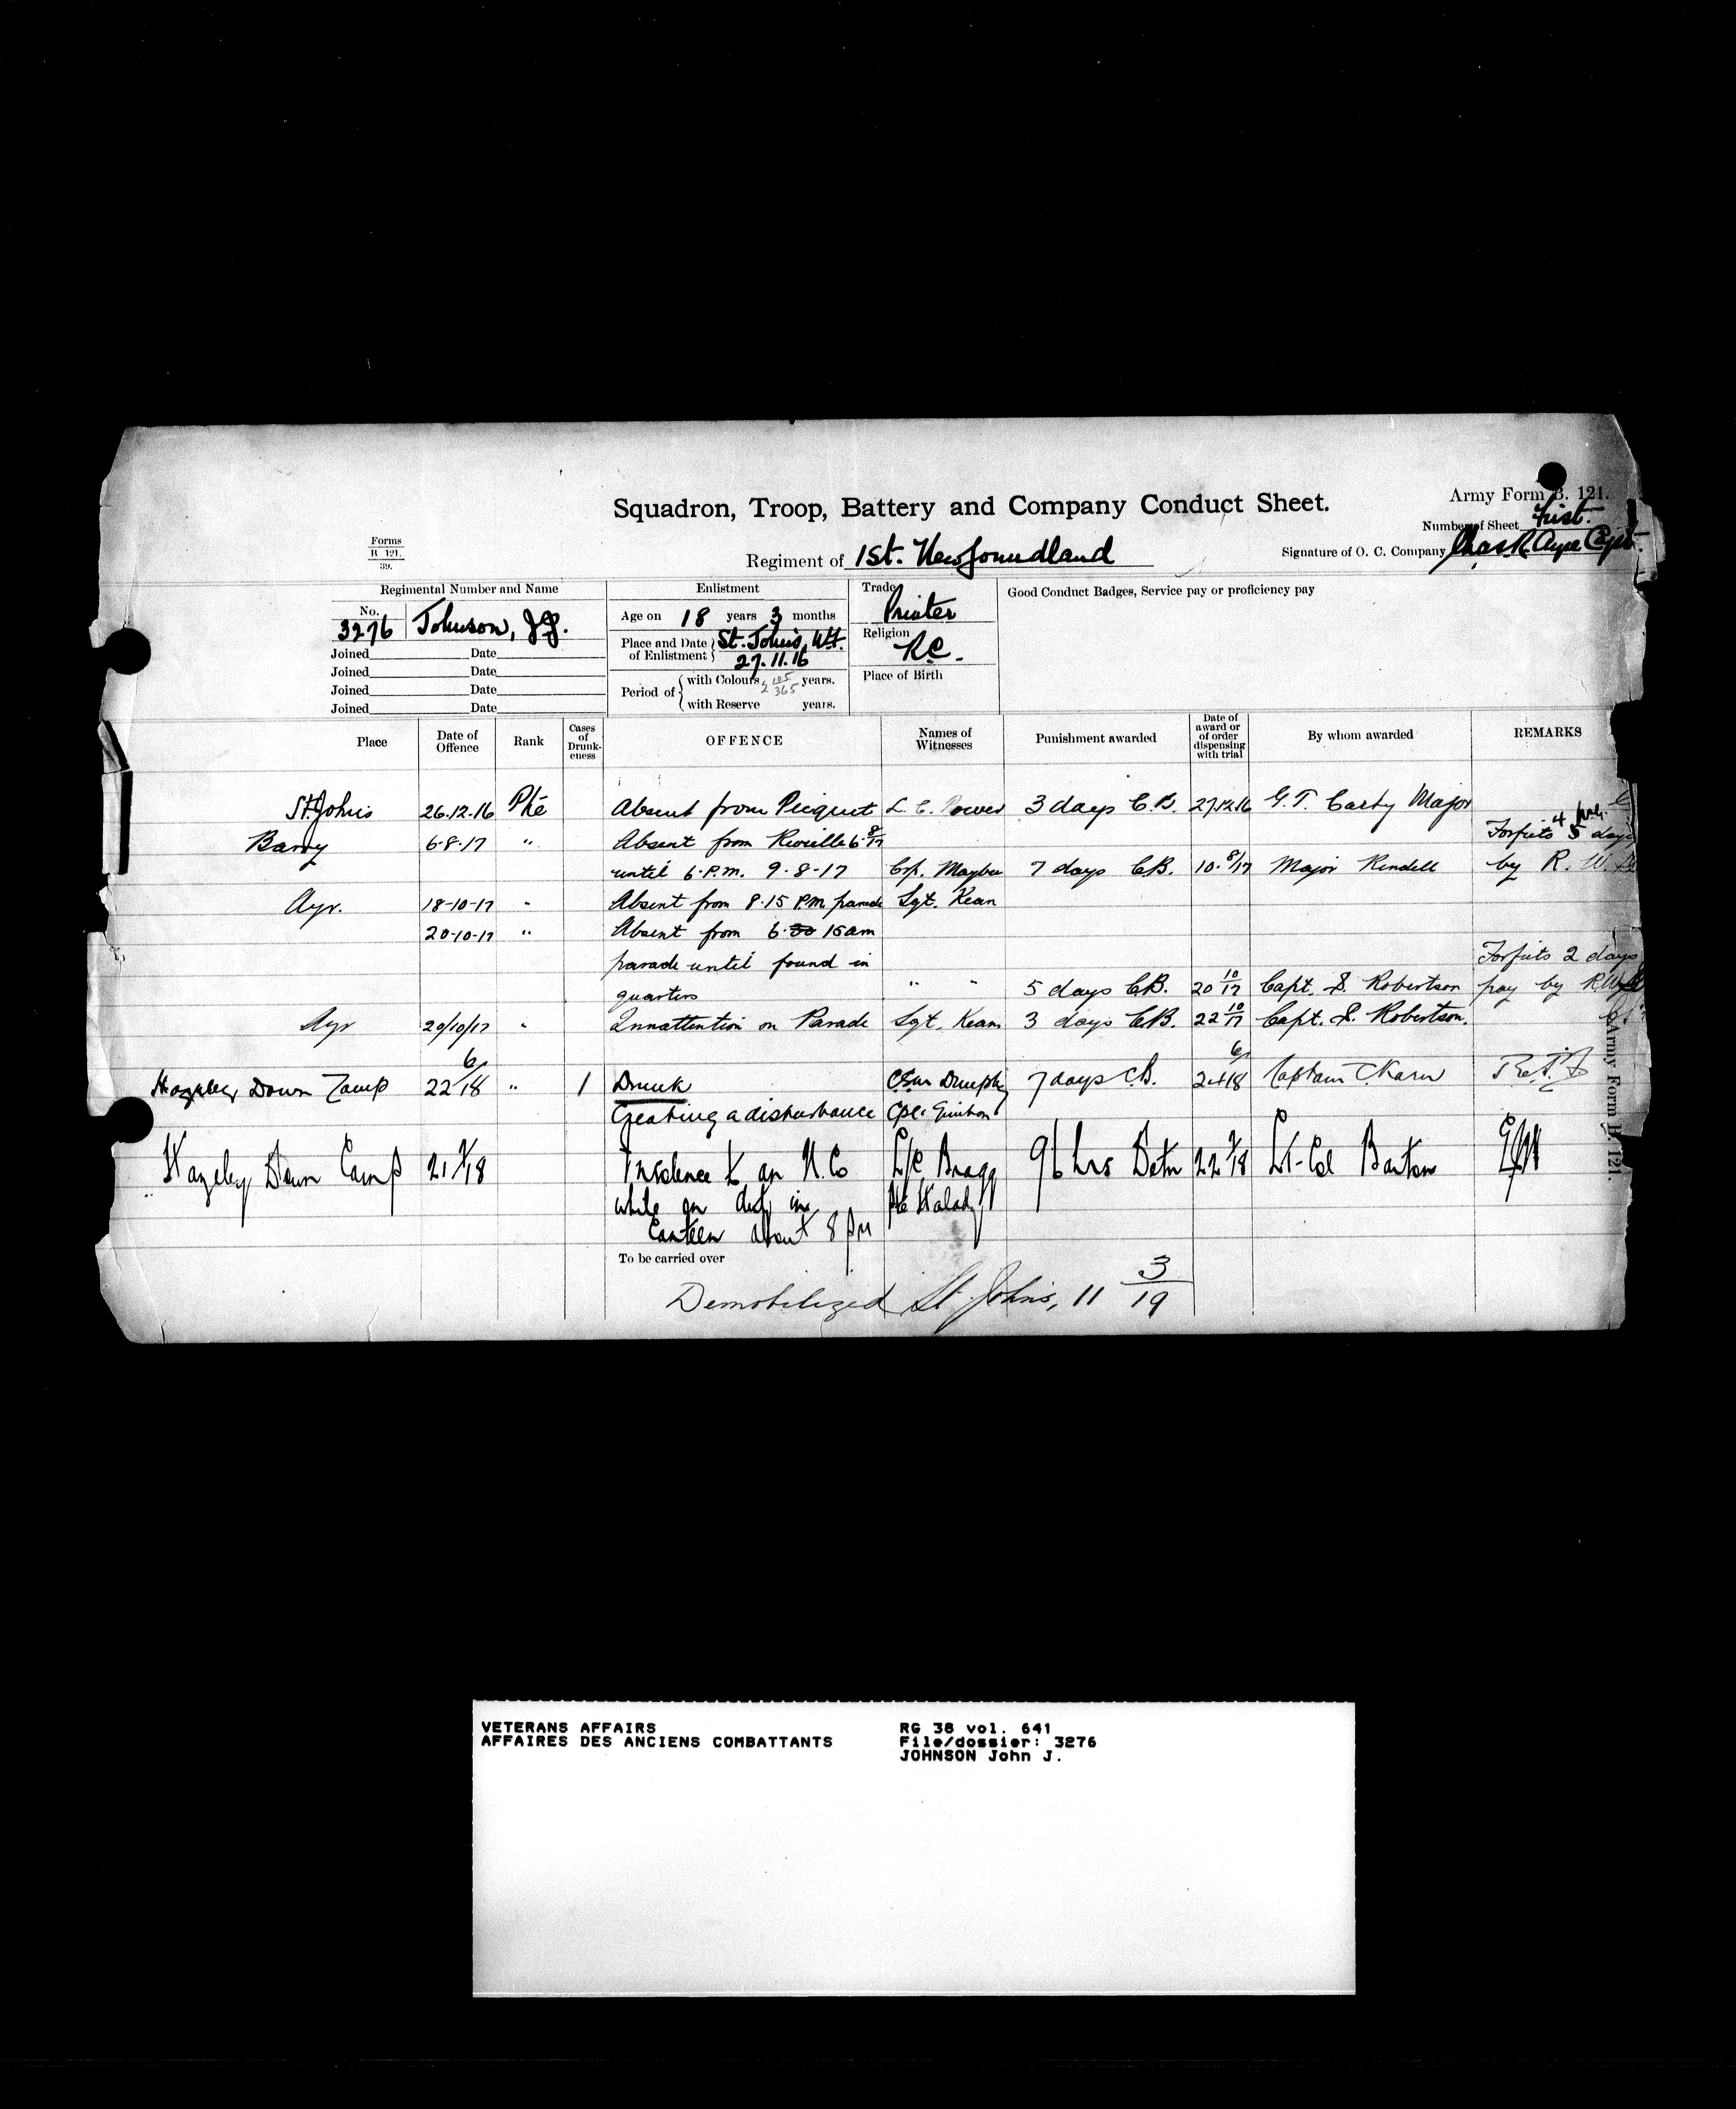 Army Form B. 121.
Squadron, Troop, Battery and Company Conduct Sheet.
Number of Sheet First.
Forms
B 121.
39.
Regiment of 1st. Newfoundland
Signature of O. C. Company Chas R Ayre Capt.
Regimental Number and Name
No.
3276 Johnson, J.J.
Joined Date
Joined Date
Joined Date
Joined Date
Enlistment
Age on 18 years 3 months
Place and Date of Enlistment St. John's, Nfl.
27.11.16
Period of with Colours 2 105/365 years.
with Reserve years.
Trade
Printer
Religion
R.C.
Place of Birth
Good Conduct Badges, Service pay or proficiency pay
Place Date of Offence Rank Cases of Drunk-eness OFFENCE Names of Witnesses Punishment awarded Date of award or of order dispensing with trial By whom awarded REMARKS
St. John's 26.12.16 Pte Absent from Picquet L. C. Power 3 days C.B. 27.12.16 G. T. Carty Major
Barry 6-8-17 " Absent from Reveille 6-8/17 Forfiets 5 days
until 6 P.M. 9-8-17 Cp. Maybee 7 days C.B. 10-8/17 Major Rendell by R. W.
Ayr. 18-10-17 " Absent from 8.15 P.M. parade Sgt. Kean
20-10-17 " Absent from 6.30 15am
parade until found in Forfiets 2 days
quarters " " 5 days C.B. 20 10/17 Capt. S. Robertson pay by R.W.
Ayr 20/10/17 " Innattention on Parade Sgt. Kean 3 days C.B. 22 10/17 Capt. S. Robertson.
Hazeley Down Camp 22 6/18 " 1 Drunk CSM Dunphy 7 days C.B. 24 6/18 Captain Karn
Creating a disturbance Cpl.
Hazeley Down Camp 21 /18 Insolence to an N.Co L/C Bragg 96 hrs Detn 22 /18 Lt-Col Barton
while on duty in Pte
Canteen about 8 pm
To be carried over
Demobilized St. John's, 11 3/19
Army Form B. 121.
VETERANS AFFAIRS
AFFAIRES DES ANCIENS COMBATTANTS
RG 38 vol. 641
File/dossier: 3276
JOHNSON John J.